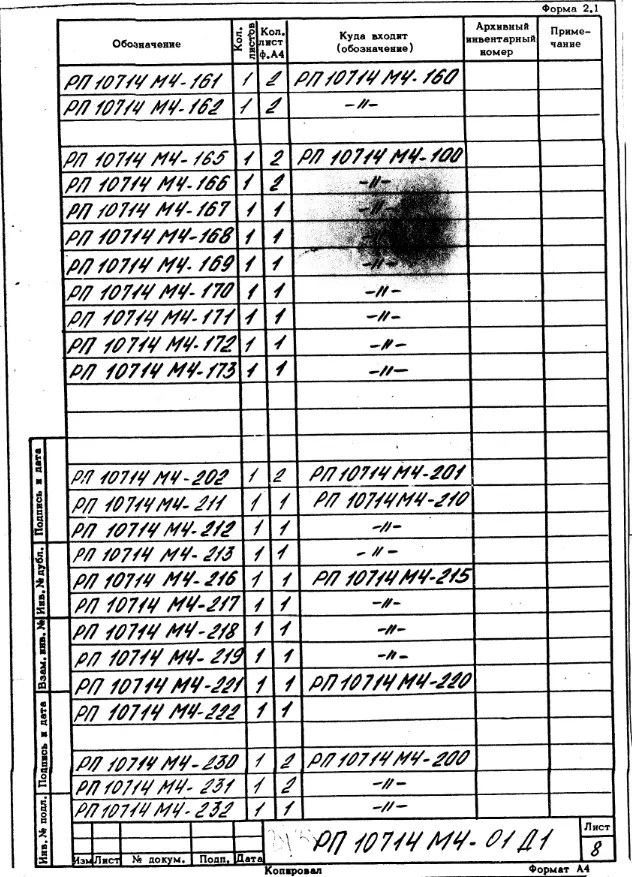 Форма 2.1
Обозначение Кол. листов Кол. лист ф.А4 Куда входит (обозначение) Архивный инвентарный номер Приме-чание
РП 10714 М4-161 1 2 РП 10714 М4-160
РП 10714 М4-162 1 2 -//-
РП 10714 М4-165 1 2 РП 10714 М4-100
РП 10714 М4-166 1 2 -//-
РП 10714 М4-167 1 1 -//-
РП 10714 М4-168 1 1
РП 10714 М4-169 1 1 -//-
РП 10714 М4-170 1 1 -//-
РП 10714 М4-171 1 1 -//-
РП 10714 М4-172 1 1 -//-
РП 10714 М4-173 1 1 -//-
РП 10714 М4-202 1 2 РП 10714 М4-201
РП 10714 М4-211 1 1 РП 10714 М4-210
РП 10714 М4-212 1 1 -//-
РП 10714 М4-213 1 1 -//-
РП 10714 М4-216 1 1 РП 10714 М4-215
РП 10714 М4-217 1 1 -//-
РП 10714 М4-218 1 1 -//-
РП 10714 М4-219 1 1 -//-
РП 10714 М4-221 1 1 РП 10714 М4-220
РП 10714 М4-222 1 1
РП 10714 М4-230 1 2 РП 10714 М4-200
РП 10714 М4-231 1 2 -//-
РП 10714 М4-232 1 1 -//-
Подпись и дата
Инв. № дубл.
Взам. инв. №
Подпись и дата
Инв. № подл.
Изм Лист № докум. Подп. Дата
РП 10714 М4-01 Д1
Лист
8
Копировал Формат А4